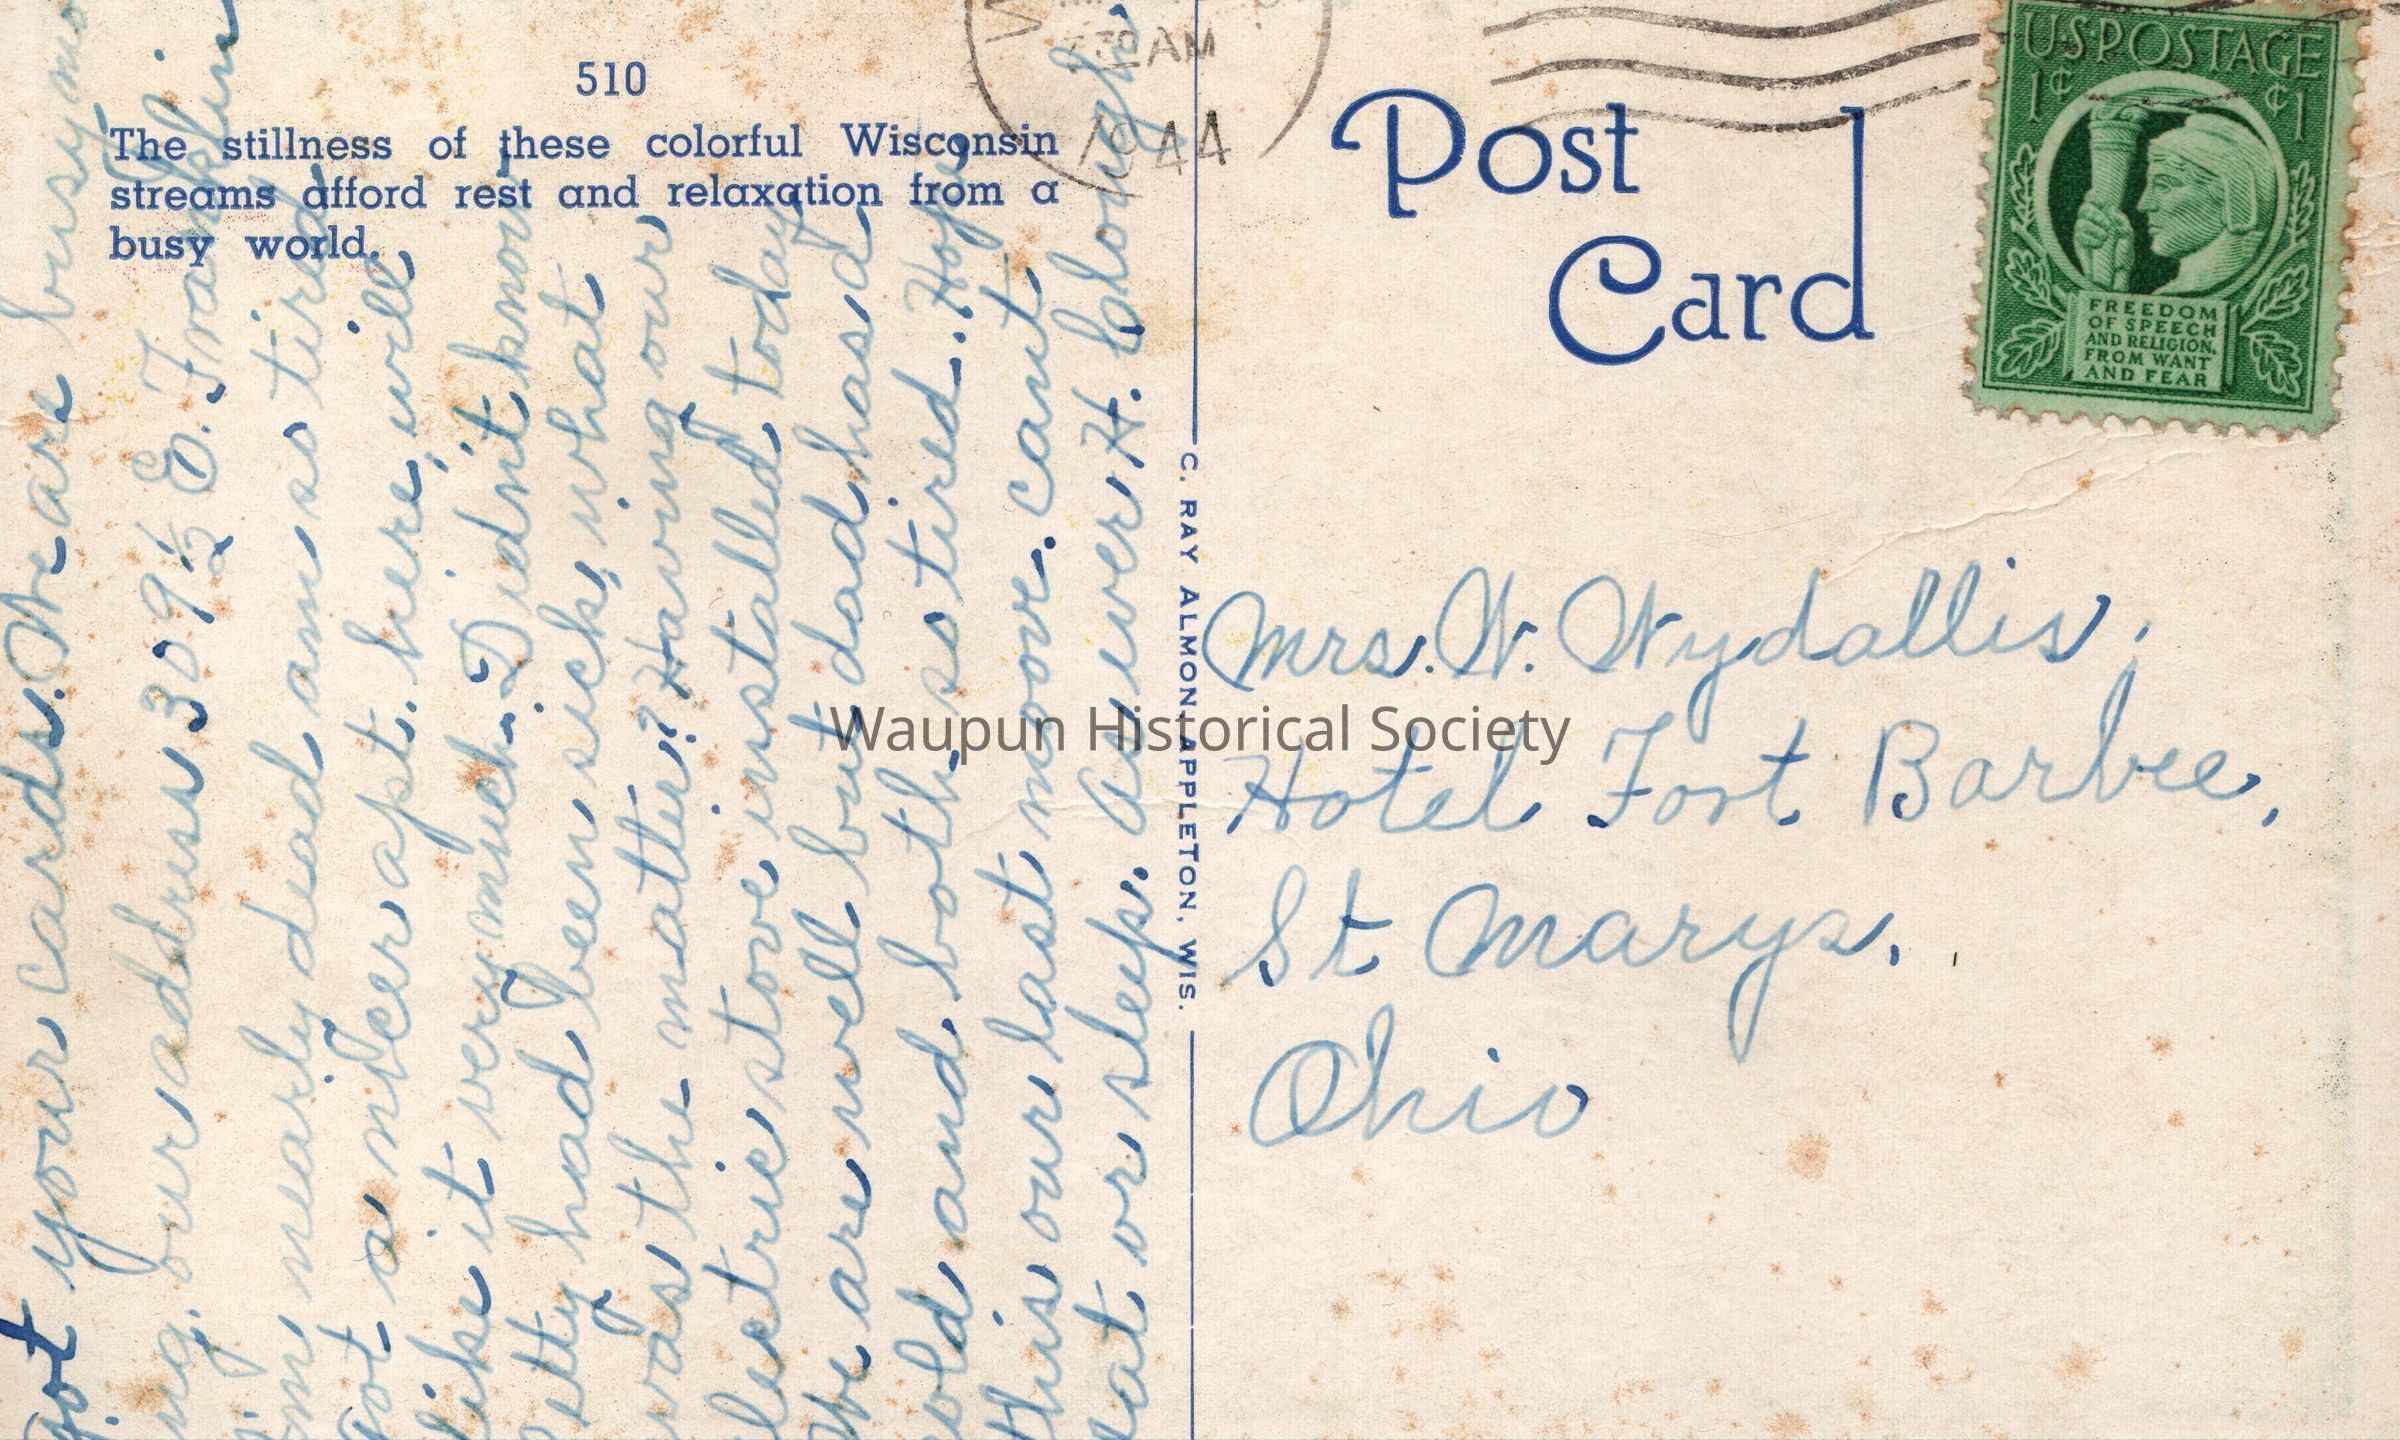 510
The stillness of these colorful Wisconsin
streams afford rest and relaxation from a
busy world.
7 30 AM
1944
Post
Card
U.S. POSTAGE
1¢ ¢1
FREEDOM
OF SPEECH
AND RELIGION,
FROM WANT
AND FEAR
C. RAY ALMON, APPLETON, WIS.
Got your cards. We are busy mo
our address 309½ E. Franklin
nearly dead am so tired
Got a nicer apt. here, will
like it very much. Didn't know
Betty had been sick, what
was the matter? Having our
electric stove installed today
We are well but dad has a
cold and both so tired. Hope
this our last move. Cant
eat or sleep. As ever H. Clough
Mrs. W. Wydallis,
Hotel Fort Barbee,
St Marys.
Ohio
Waupun Historical Society